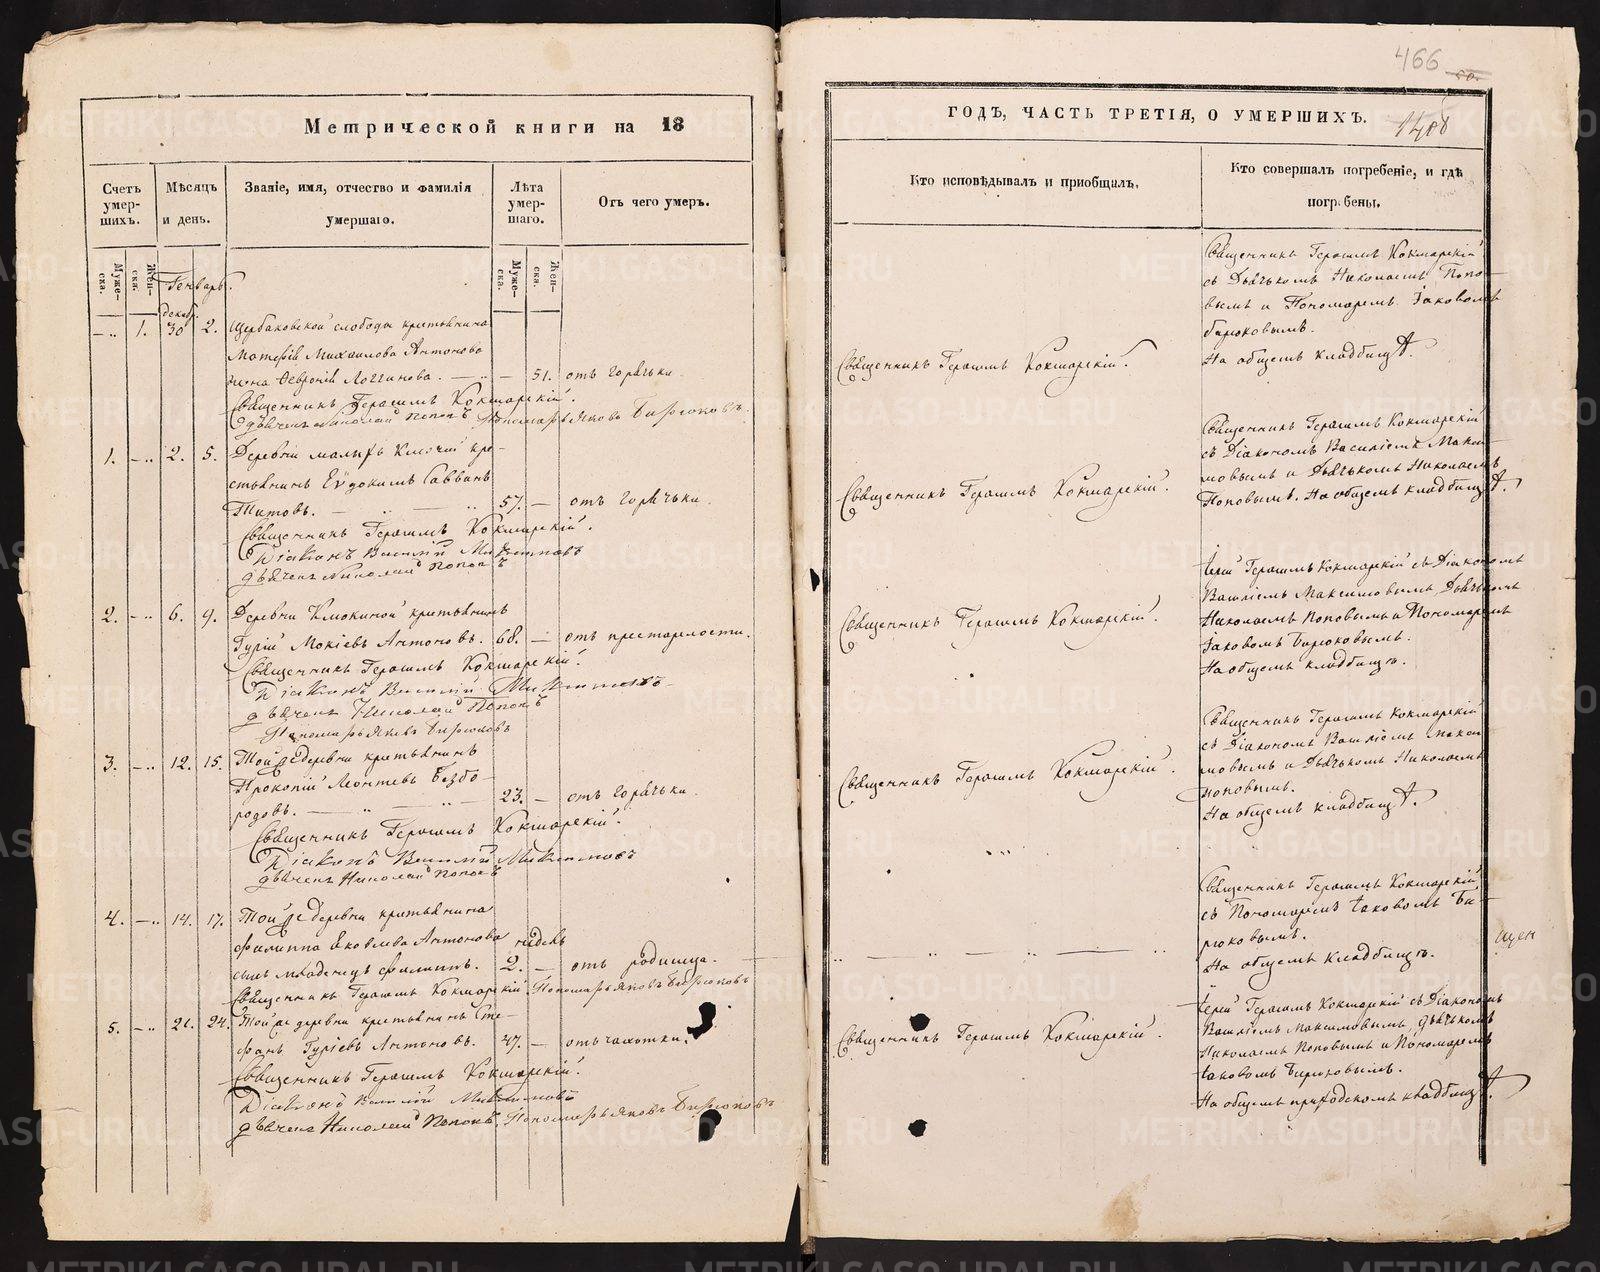 Метрической книги на 18
Счетъ умер-шихъ.
Мѣсяцъ и день.
Званіе, имя, отчество и фамилія умершаго.
Лѣта умер-шаго.
Отъ чего умеръ.
Муже-ска.
Жен-ска.
Муже-ска.
Жен-ска.
Генварь.
декаб.
1. 30 2. Щербаковской слободы крестьянина
Михаилова Антонова
жена Февронія Логинова. 51. отъ горячьки
Священникъ Герасимъ Кокшарскій.
дьячекъ Николай Поповъ Пономарь Яковъ Бирюковъ.
1. 2. 5. Деревни кре-
стьянинъ Евдокимъ Саввинъ
Титовъ. 57. отъ горячьки
Священникъ Герасимъ Кокшарскій.
Діаконъ Василий Максимовъ
дьячекъ Николай Поповъ
2. 6. 9. Деревни Клюкиной крестьянинъ
Гурій Мокіевъ Антоновъ. 68. отъ престарелости.
Священникъ Герасимъ Кокшарскій.
Діаконъ Василий Максимовъ
дьячекъ Николай Поповъ
Пономарь Яковъ Бирюковъ
3. 12. 15. Той же деревни крестьянинъ
Прокопій Леонтьевъ Безбо-
родовъ. 23. отъ горячьки
Священникъ Герасимъ Кокшарскій.
Діаконъ Василий Максимовъ
дьячекъ Николай Поповъ
4. 14. 17. Той же деревни крестьянина
Филиппа Яковлева Антонова недель
сынъ младенецъ Филиппъ. 2. отъ родимца.
Священникъ Герасимъ Кокшарскій. Пономарь Яковъ Бирюковъ
5. 21. 24. Той же деревни крестьянинъ Сте-
фанъ Гуріевъ Антоновъ. 47. отъ чахотки.
Священникъ Герасимъ Кокшарскій.
Діаконъ Василий Максимовъ
дьячекъ Николай Поповъ. Пономарь Яковъ Бирюковъ
466
ГОДЪ, ЧАСТЬ ТРЕТІЯ, О УМЕРШИХЪ.
Кто исповѣдывалъ и пріобщалъ.
Кто совершалъ погребеніе, и гдѣ погребены.
Священникъ Герасимъ Кокшарскій
съ Дьячькомъ Николаемъ Попо-
вымъ и Пономаремъ Іаковомъ
Бирюковымъ.
Священникъ Герасимъ Кокшарскій.
На общемъ кладбищѣ.
Священникъ Герасимъ Кокшарскій
съ Діакономъ Василіемъ Макси-
мовымъ и Дьячькомъ Николаемъ
Священникъ Герасимъ Кокшарскій.
Поповымъ. На общемъ кладбищѣ.
Іерей Герасимъ Кокшарскій съ Діакономъ
Василіемъ Максимовымъ Дьячькомъ
Священникъ Герасимъ Кокшарскій.
Николаемъ Поповымъ и Пономаремъ
Іаковомъ Бирюковымъ.
На общемъ кладбищѣ.
Священникъ Герасимъ Кокшарскій
съ Діакономъ Василіемъ Макси-
мовымъ и Дьячькомъ Николаемъ
Священникъ Герасимъ Кокшарскій.
Поповымъ.
На общемъ кладбищѣ.
Священникъ Герасимъ Кокшарскій
съ Пономаремъ Іаковомъ Би-
рюковымъ.
На общемъ кладбищѣ.
Іерей Герасимъ Кокшарскій съ Діакономъ
Василіемъ Максимовымъ, дьячькомъ
Священникъ Герасимъ Кокшарскій.
Николаемъ Поповымъ и Пономаремъ
Іаковомъ Бирюковымъ.
На общемъ приходскомъ кладбищѣ.
METRIKI.GASO-URAL.RU